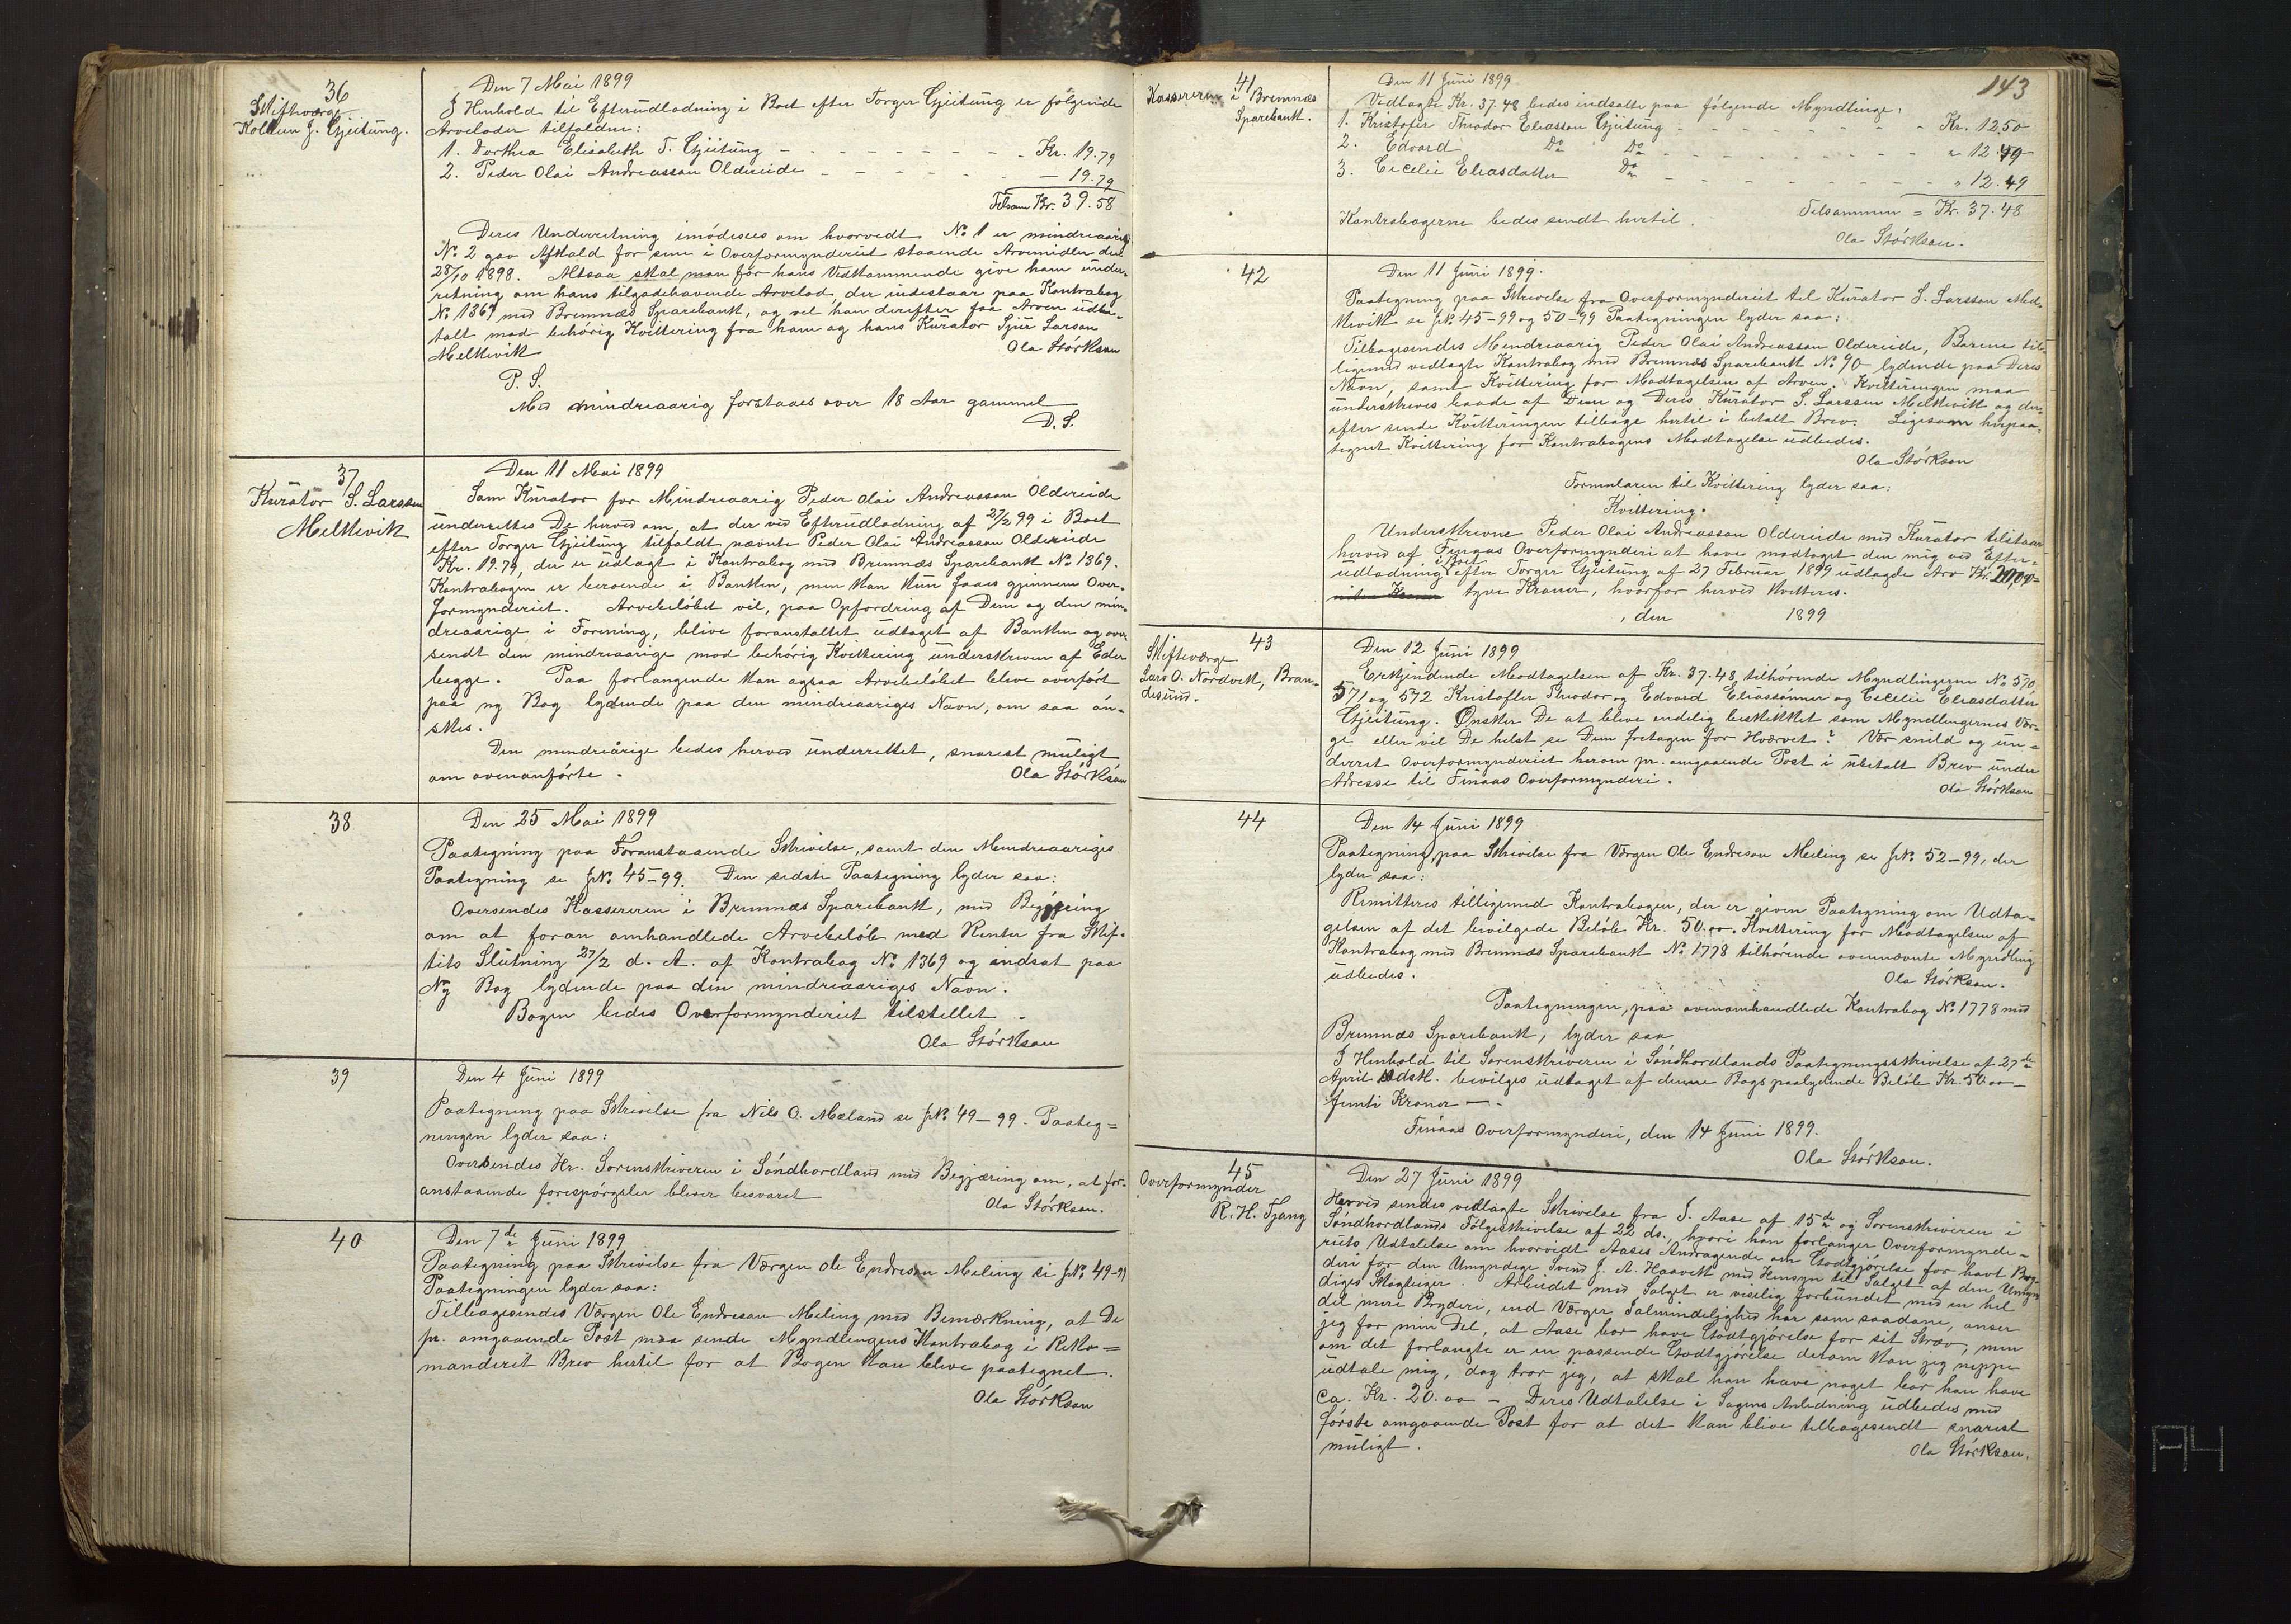 36
Skifteværge
Kolbein J. Gjeitung.
Den 7 Mai 1899
I Henhold til Efterudlodning i Boet efter Torger Gjeitung er følgende
Arvelodder tilfaldne:
1. Dorthea Elisabeth T. Gjeitung - - - - - - - Kr. 19.79
2. Peder Olai Andreassan Oldereide - - - - - — 19.79
Tilsam Kr. 39.58
Deres Underretning imødesees om hvorvedt No 1 er mindreaarig
No 2 gav Afkald for sine i Overformynderiet staaende Arvemidler den
28/10 1898. Altsaa skal man for hans Vedkommende give ham under-
retning om hans tilgodehavende Arvelod, der indestaar paa Kontrabog
No 1369 med Bremnæs Sparebank, og vil han derefter faa Arven udbe-
talt mod behørig Kvittering fra ham og hans Kurator Sjur Larson
Melkevik
Ola Størkson
P. S.
Med mindreaarig forstaaes over 18 Aar gammel
D. S.
37
Kurator S. Larssen
Melkevik
Den 11 Mai 1899
Som Kurator for Mindreaarig Peder Olai Andreassan Oldereide
underrettes De herved om, at der ved Efterudlodning af 27/2 99 i Boet
efter Torger Gjeitung tilfaldt nævnte Peder Olai Andreassan Oldereide
Kr. 19.79, der er udlagt i Kontrabog med Bremnæs Sparebank No 1369.
Kontrabogen er beroende i Banken, men kan kun faaes gjennem Over-
formynderiet. Arvebeløbet vil, paa Opfordring af Dem og den min-
dreaarige i Forening, blive foranstaltet udtaget af Banken og over-
sendt den mindreaarige mod behørig Kvittering underskreven af Eder
begge. Paa forlangende kan ogsaa Arvebeløbet blive overført
paa ny Bog lydende paa den mindreaariges Navn, om saa øn-
skes.
Den mindreårige bedes herved underrettet, snarest muligt
om ovenanførte.
Ola Størkson
38
Den 25 Mai 1899
Paategning paa Foranstaaende Skrivelse, samt den Mindreaariges
Paategning se JNo 45-99. Den sidste Paategning lyder saa:
Oversendes Kassereren i Bremnæs Sparebank, med Begjæring
om at foran omhandlede Arvebeløb med Renter fra Skif-
tets Slutning 27/2 d. A. af Kontrabog No 1369 og indsat paa
Ny Bog lydende paa den mindreaariges Navn.
Bogen bedes Overformynderiet tilstellet.
Ola Størkson
39
Den 4 Juni 1899
Paategning paa Skrivelse fra Nils O. Mæland se JNo 49-99. Paateg=
ningen lyder saa:
Oversendes Hr. Sorenskriveren i Søndhordland med Begjæring om, at for-
anstaaende forespørgsler bliver besvaret
Ola Størkson.
40
Den 7de Juni 1899
Paategning paa Skrivelse fra Værgen Ole Endreson Meling se JNo 49-99
Paategningen lyder saa:
Tilbagesendes Værgen Ole Endresan Meling med Bemærkning, at De
pr. omgaaende Post maa sende Myndlingens Kontrabog i Reko=
manderet Brev hertil for at Bogen kan blive paategnet.
Ola Størkson
143
41
Kassereren i Bremnæs
Sparebank.
Den 11 Juni 1899
Vedlagte Kr. 37.48 bedes indsatte paa følgende Myndlinge:
1. Kristofer Theodor Eliassan Gjeitung - - - - - - Kr. 12.50
2. Edvard Do Do - - - - - - " 12.49
3. Cecelie Eliasdatter Do - - - - - - " 12.49
Tilsammen = Kr. 37.48
Kontrabøgerne bedes sendt hertil.
Ola Størkson.
42
Den 11 Juni 1899.
Paategning paa Skrivelse fra Overformynderiet til Kurator S. Larsson Mel-
kevik se JNo 45-99 og 50-99 Paategningen lyder saa:
Tilbagesendes Mindreaarig Peder Olai Andreassan Oldereide, Børene til-
ligemed vedlagte Kontrabog med Bremnæs Sparebank No 90 lydende paa Deres
Navn, samt Kvittering for Modtagelsen af Arven. Kvitteringen maa
underskrives baade af Dem og Deres Kurator S. Larssen Melkevik og der-
efter sende Kvitteringen tilbage hertil i betalt Brev. Ligesom herpaa-
tegnet Kvittering for Kontrabogens Modtagelse udbedes.
Ola Størkson
Formularen til Kvittering lyder saa:
Kvittering.
Underskrevne Peder Olai Andreassan Oldereide med Kurator tilstaar
herved af Finaas Overformynderi at have modtaget den mig ved Efter-
udlodning i Boet efter Torger Gjeitung af 27 Februar 1899 udlagde Arv Kr. 20,00=
tyve Kroner, hvorfor herved kvitteres.
, den 1899
43
Skifteværge
Lars O. Nordvik, Bran-
desund.
Den 12 Juni 1899
Erkjendende Modtagelsen af Kr. 37.48 tilhørende Myndlingerne No 570,
571 og 572 Kristoffer Theodor og Edvard Eliassønner og Cecelie Eliasdatter
Gjeitung. Ønsker De at blive endelig beskikket som Myndlingernes Vær-
ge eller vil De helst se Dem fretagen for Hvervet? Vær snild og un-
derret Overformynderiet herom pr. omgaaende Post i ubetalt Brev under
Adresse til Finaas Overformynderi.
Ola Størkson
44
Den 14 Juni 1899
Paategning paa Skrivelse fra Værgen Ole Endreson Meling se JNo 52-99, der
lyder saa:
Remitteres tilligemed Kontrabogen, der er given Paategning om Udta-
gelsen af det bevilgede Beløb Kr. 50.00. Kvittering for Modtagelsen af
Kontrabog med Bremnæs Sparebank No 1778 tilhørende ovennævnte Myndling
udbedes.
Ola Størkson.
Paategningen, paa ovenomhandlede Kontrabog No 1778 med
Bremnæs Sparebank, lyder saa
I Henhold til Sorenskriveren i Søndhordlands Paategningsskrivelse af 27de
April sidstl. bevilges udtaget af denne Bogs paalydende Beløb Kr. 50.00 —
femti Kroner — .
Finaas Overformynderi, den 14 Juni 1899.
Ola Størkson.
45
Overformynder
R. H. Tjang
Den 27 Juni 1899
Herved sendes vedlagte Skrivelse fra S. Aase af 15de og Sorenskriveren i
Søndhordlands Følgeskrivelse af 22 ds., hvori han forlanger Overformynde-
riets Udtalelse om hvorvidt Aases Andragende om Godtgjørelse for havt Bry-
deri for den Umyndige Svend J. A. Haavik med Hensyn til Salget af den Umyn-
diges Skogteiger. Arbeidet med Salget er viselig forbundet med en hel
del mere Bryderi, end Værger i almindelighed har som saadane, anser
jeg for min Del, at Aase bør have Godtgjørelse for sit Stræv, men
om det forlangte er en passende Godtgjørelse derom kan jeg neppe
udtale mig, dog tror jeg, at skal han have noget bør han have
Ca. Kr. 20.00 — Deres Udtalelse i Sagens Anledning udbedes med
første omgaaende Post for at det kan blive tilbagesendt snarest
muligt.
Ola Størkson.